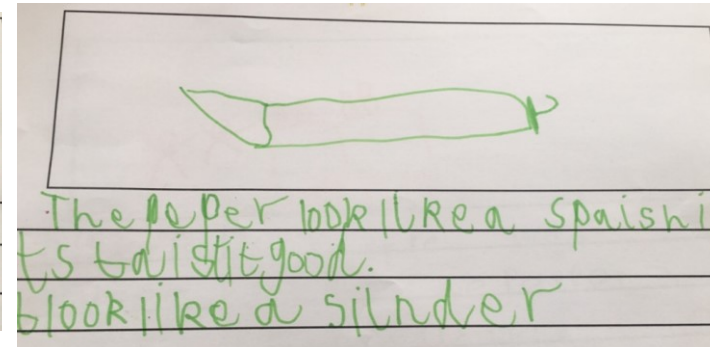 The peper look like a spaishi
ts taistit good.
blook like a silnder